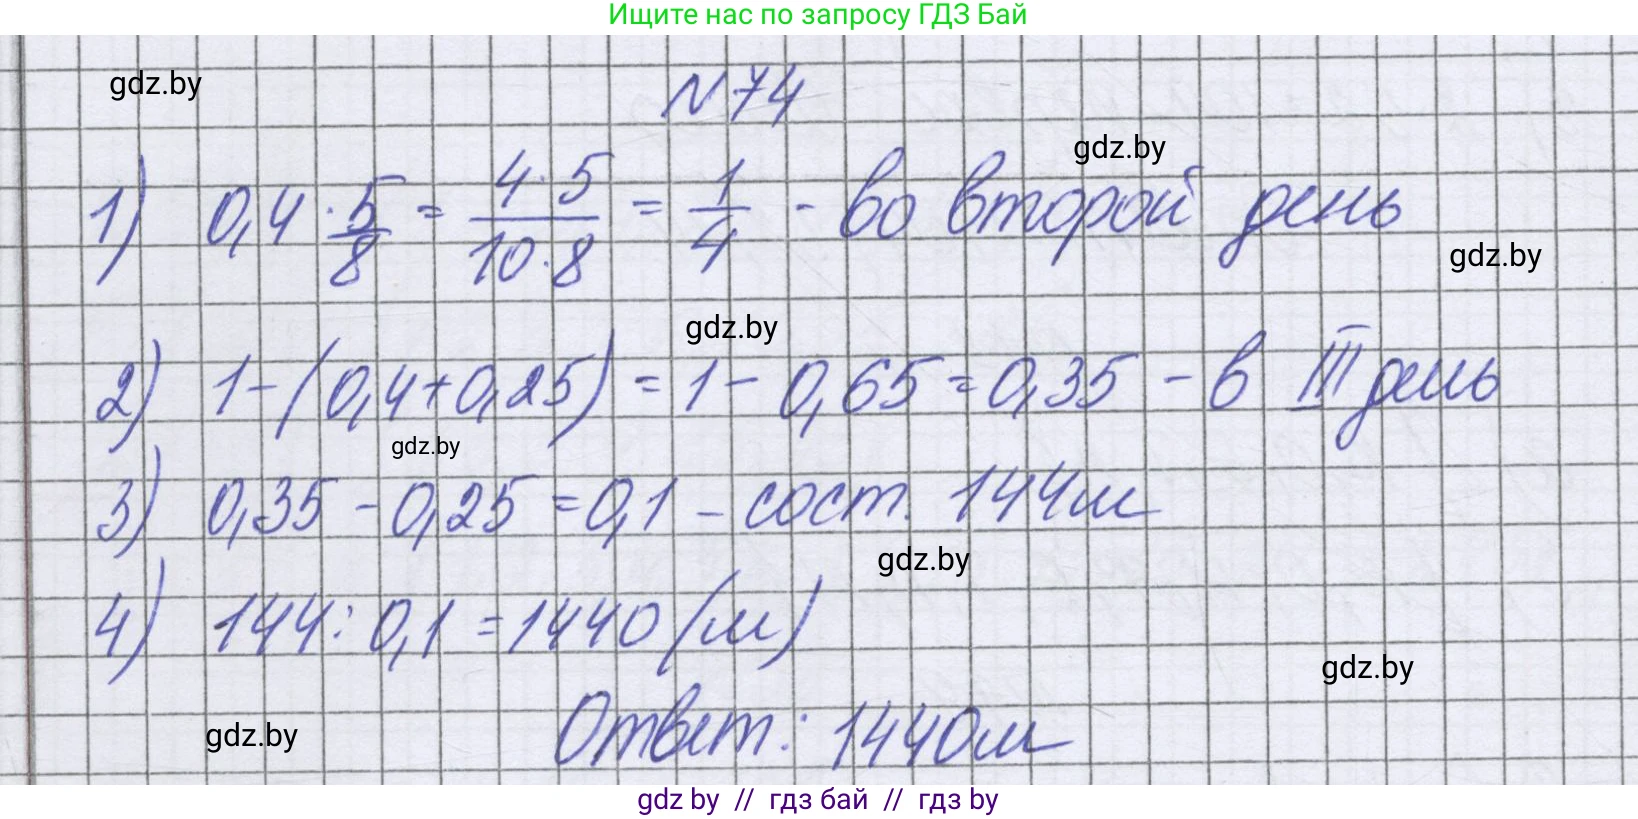 Ищите нас по запросу ГДЗ Бай
gdz.by
N 74
gdz.by
1) 0,4 · 5/8 = 4·5/10·8 = 1/4 - во второй день
gdz.by
gdz.by
2) 1 - (0,4 + 0,25) = 1 - 0,65 = 0,35 - в III день
gdz.by
3) 0,35 - 0,25 = 0,1 - сост. 144м
gdz.by
4) 144 : 0,1 = 1440 (м)
gdz.by
gdz.by
Ответ: 1440м
gdz by // гдз бай // гдз by